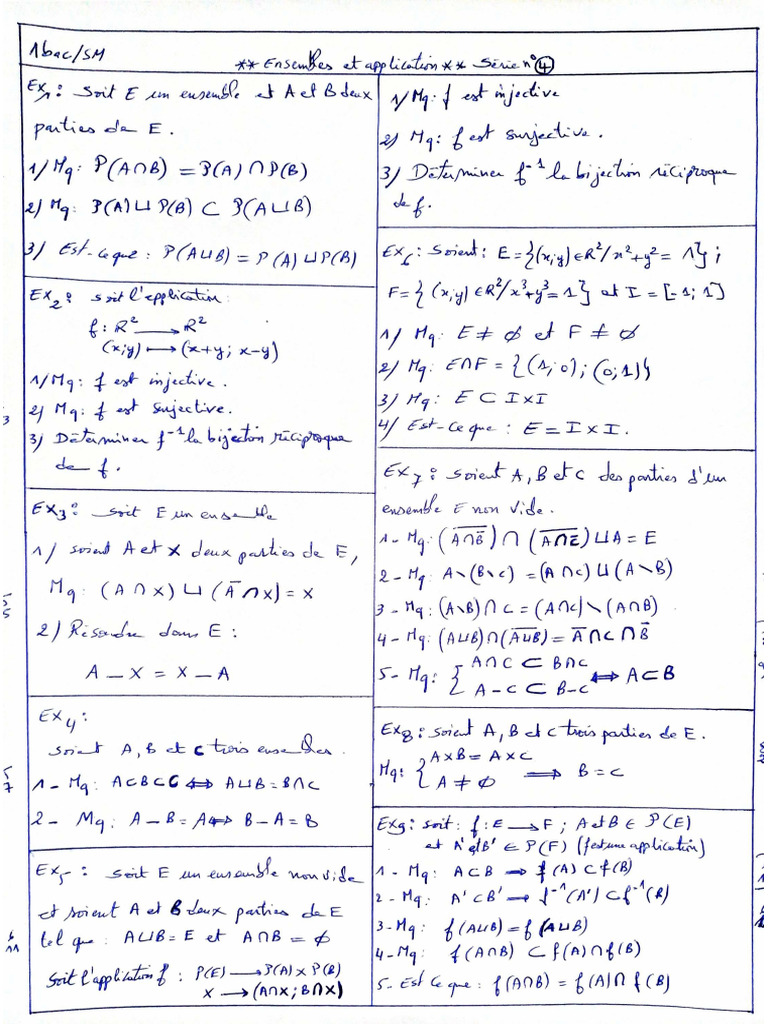 1bac/SM
** Ensembles et application ** Série n° 4
Ex1: Soit E un ensemble et A et B deux
parties de E.
1/ Mq: P(A∩B) = P(A)∩P(B)
2/ Mq: P(A)∪P(B) ⊂ P(A∪B)
3/ Est-ce que : P(A∪B) = P(A)∪P(B)
Ex2: soit l'application:
f: R² ⟶ R²
(x;y) ⟼ (x+y; x-y)
1/ Mq: f est injective.
2/ Mq: f est surjective.
3) Déterminer f⁻¹ la bijection réciproque
de f.
Ex3: soit E un ensemble
1/ soient A et X deux parties de E,
Mq: (A∩X) ∪ (Ā∩X) = X
2) Résoudre dans E:
A − X = X − A
Ex4:
soient A, B et C trois ensembles.
1 - Mq: A⊂B⊂C ⟺ A∪B = B∩C
2 - Mq: A − B = A ⟺ B − A = B
Ex5: soit E un ensemble non vide
et soient A et B deux parties de E
tel que: A∪B = E et A∩B = ∅
Soit l'application f: P(E) ⟶ P(A) x P(B)
X ⟶ (A∩X; B∩X)
1/ Mq: f est injective
2) Mq: f est surjective.
3) Déterminer f⁻¹ la bijection réciproque
de f.
Ex6: Soient: E = {(x;y) ∈ R²/ x²+y² = 1};
F = {(x;y) ∈ R²/ x³+y³ = 1} et I = [-1; 1]
1/ Mq: E ≠ ∅ et F ≠ ∅
2/ Mq: E∩F = {(1;0); (0;1)}
3) Mq: E ⊂ I x I
4/ Est-ce que: E = I x I.
Ex7: soient A, B et C des parties d'un
ensemble E non vide.
1 - Mq: (A∩B̄) ∩ (A∩C̄) ∪ A = E
2 - Mq: A∖(B∖C) = (A∩C) ∪ (A∖B)
3 - Mq: (A∖B)∩C = (A∩C)∖(A∩B)
4 - Mq: (A∪B)∩(A∪B) = Ā∩C∩B̄
5 - Mq: { A∩C ⊂ B∩C
A − C ⊂ B − C ⟺ A⊂B
Ex8: soient A, B et C trois parties de E.
Mq: { A×B = A×C
A ≠ ∅ ⟹ B = C
Ex9: soit: f: E ⟶ F; A et B ∈ P(E)
et A' et B' ∈ P(F) (f est une application)
1 - Mq: A⊂B ⟹ f(A) ⊂ f(B)
2 - Mq: A'⊂B' ⟹ f⁻¹(A') ⊂ f⁻¹(B)
3 - Mq: f(A∪B) = f(A∪B)
4 - Mq: f(A∩B) ⊂ f(A)∩f(B)
5 - Est ce que: f(A∩B) = f(A)∩f(B)